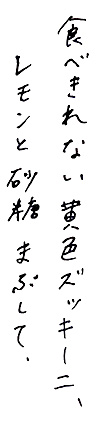 食べきれない黄色ズッキーニ、
レモンと砂糖まぶして、